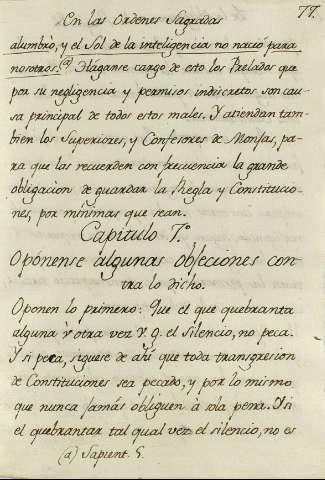 77.
En las Ordenes Sagradas
alumbrò, y el Sol de la inteligencia no nació para
nosotros.(a) Haganse cargo de esto los Prelados que
por su negligencia y permisos indiscretos son cau-
sa principal de todos estos males. Y atiendan tam-
bien los Superiores, y Confesores de Monjas, pa-
ra que las recuerden con frecuencia la grande
obligacion de guardar la Regla y Constitucio-
nes, por minimas que sean.
Capitulo 7.º
Oponense algunas objeciones con-
tra lo dicho.
Oponen lo primero: Que el que quebranta
alguna ỳ otra vez V. g. el silencio, no peca.
Y si peca, siguese de ahi que toda transgresion
de Constituciones sea pecado, y por lo mismo
que nunca jamás obliguen à sola pena. Y si
el quebrantar tal qual vez el silencio, no es
(a) Sapient. 5.